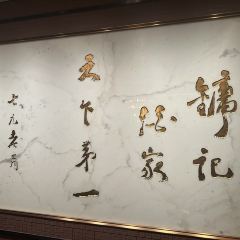 鏞記
酒家
天下第一